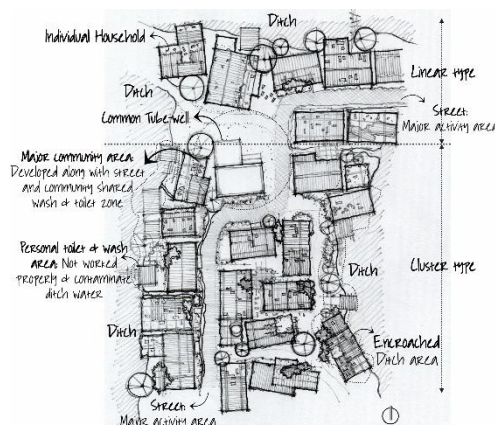 Ditch
Individual Household
Linear type
Ditch
Street:
Major activity area
Common Tube-well
Major community area:
Developed along with street
and community shared
wash & toilet zone
Personal toilet & wash
area: Not worked
properly & contaminate
ditch water
Ditch
Cluster type
Ditch
Encroached
Ditch area
Street:
Major activity area